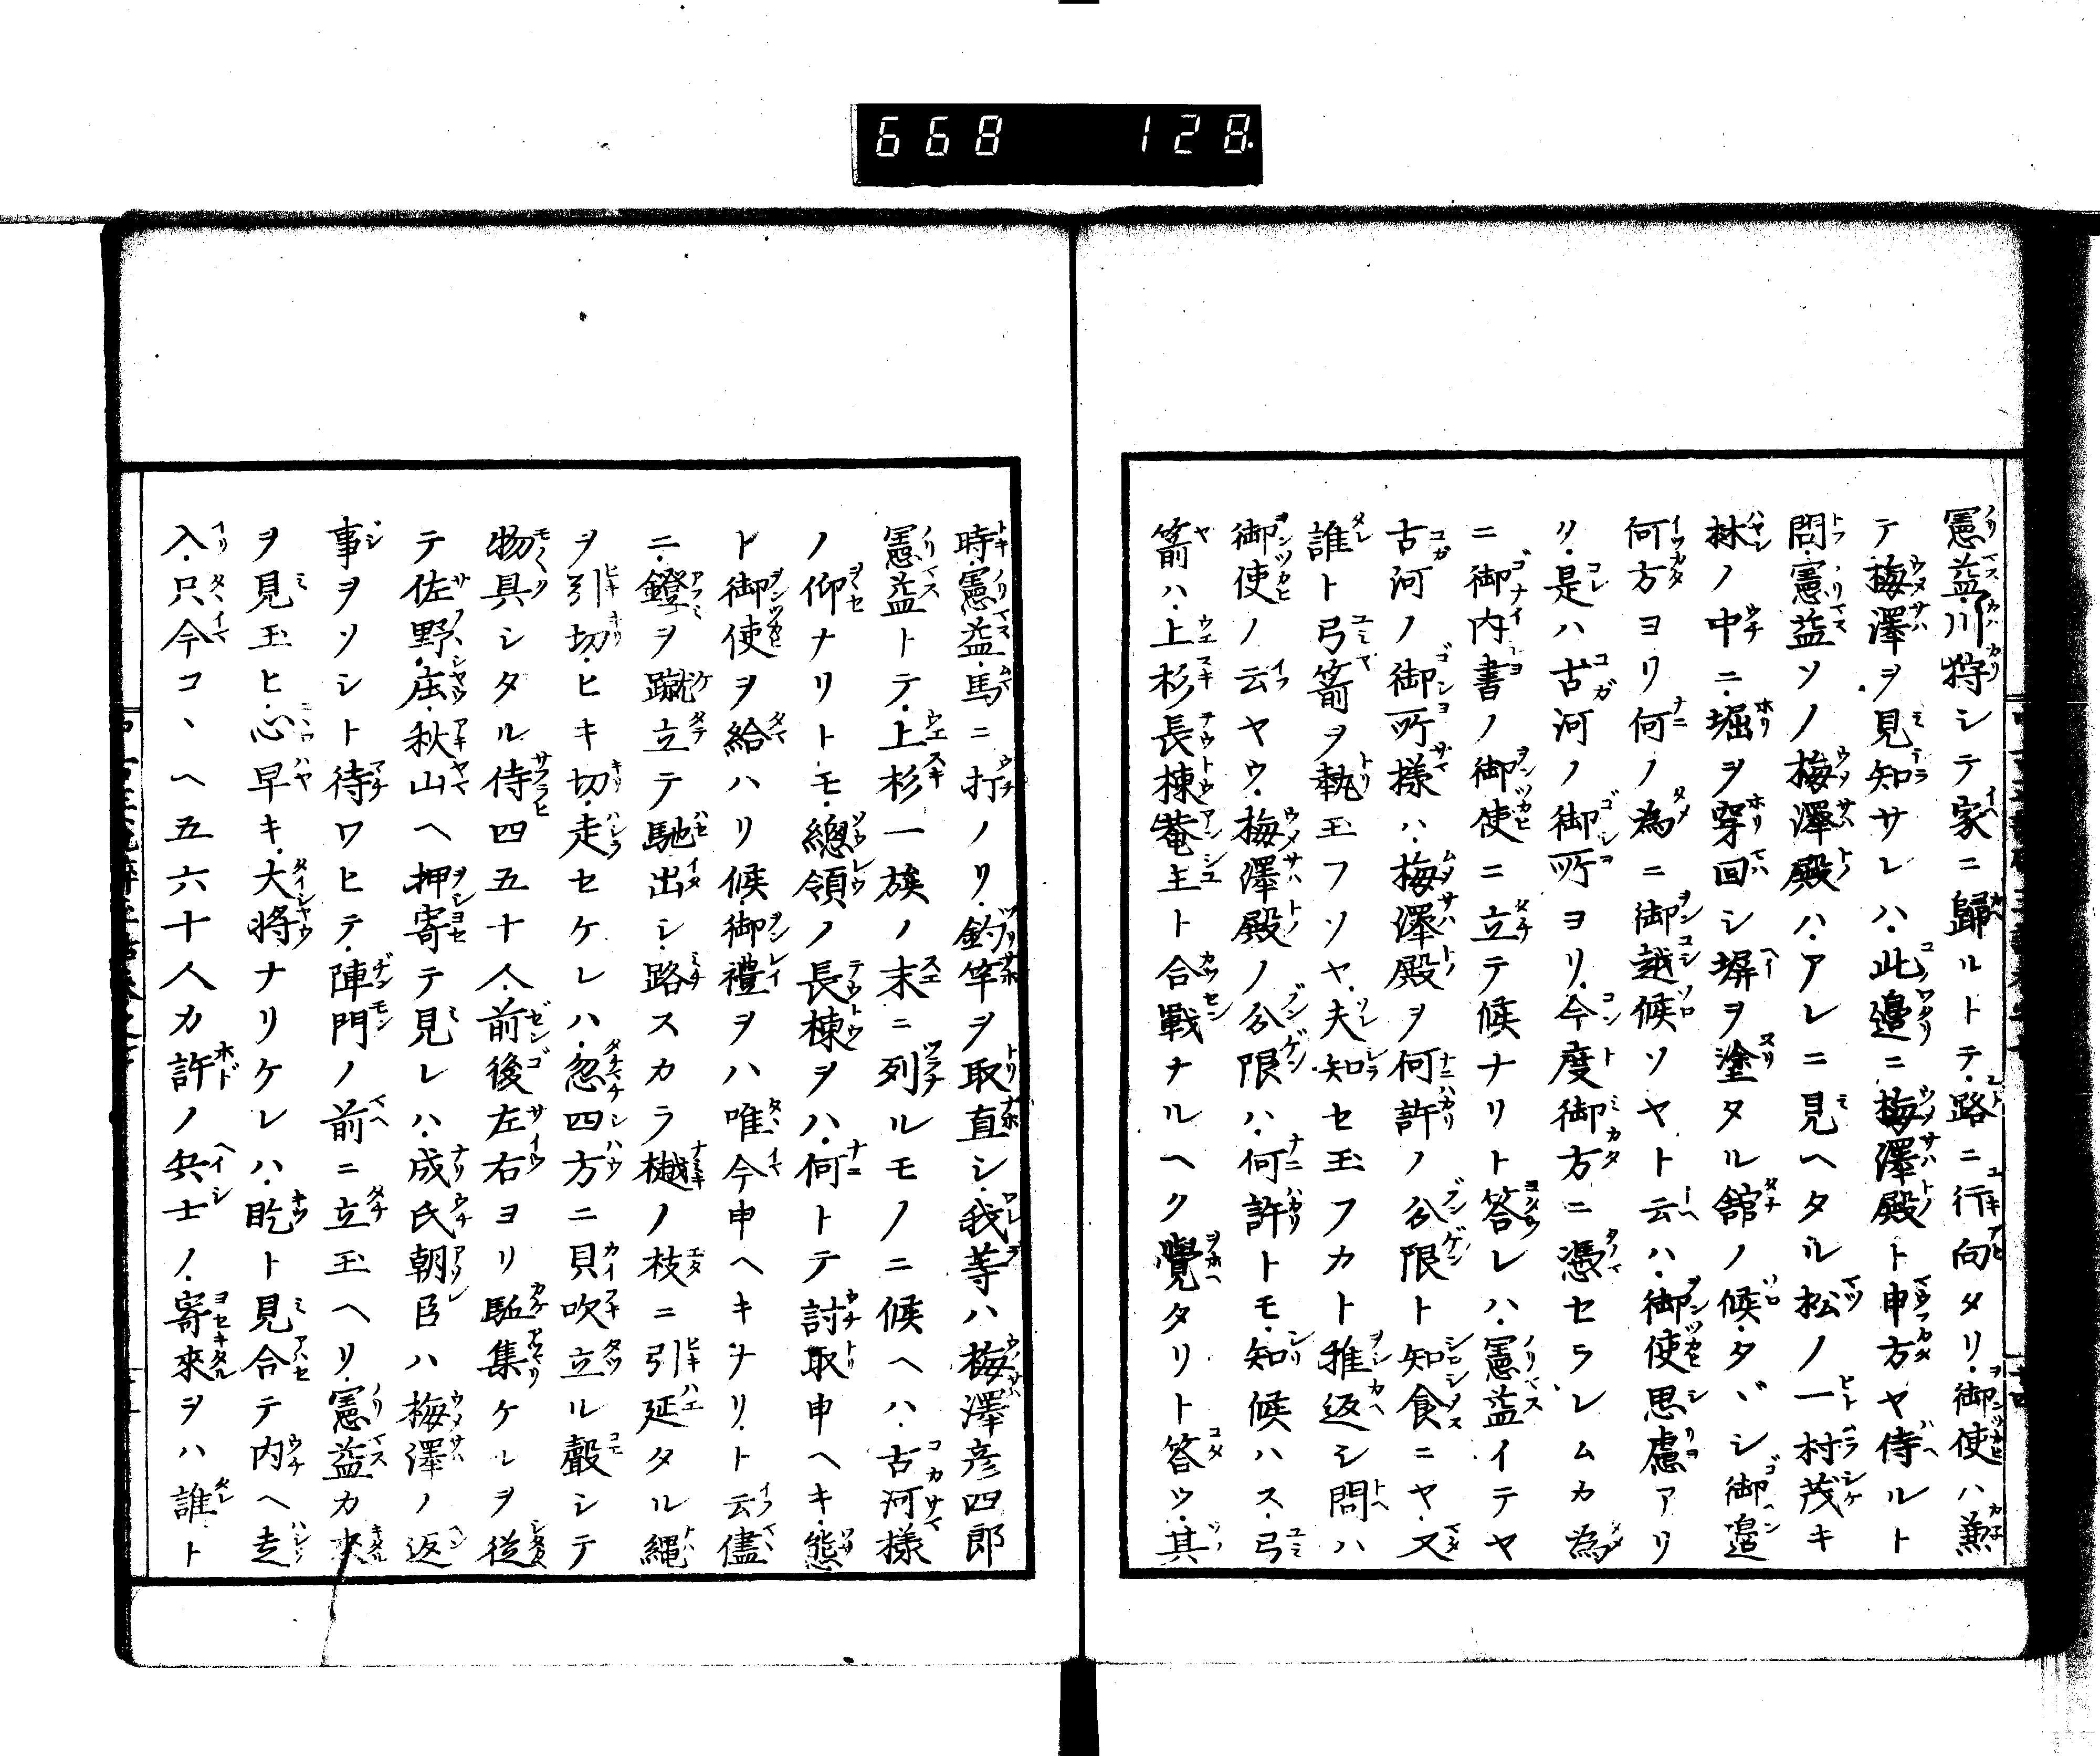 668 128.
憲益川狩シテ家ニ歸ルトテ路ニ行向タリ御使ハ兼
テ梅澤ヲ見知サレハ此邉ニ梅澤殿ト申方ヤ侍ルト
問憲益ソノ梅澤殿ハアレニ見ヘタル松ノ一村茂キ
林ノ中ニ堀ヲ穿回シ塀ヲ塗タル舘ノ候タヾシ御邉
何方ヨリ何ノ為ニ御越候ソヤト云ハ御使思慮アリ
リ是ハ古河ノ御所ヨリ今度御方ニ憑セラレムカ為
ニ御内書ノ御使ニ立テ候ナリト答レハ憲益イテヤ
古河ノ御所樣ハ梅澤殿ヲ何許ノ公限ト知食ニヤ又
誰ト弓箭ヲ執玉フソヤ夫知セ玉フカト推返シ問ハ
御使ノ云ヤウ梅澤殿ノ公限ハ何許トモ知候ハス弓
箭ハ上杉長棟菴主ト合戰ナルヘク覺タリト答ツ其
時憲益馬ニ打ノリ釣竿ヲ取直シ我等ハ梅澤彦四郎
憲益トテ上杉一族ノ末ニ列ルモノニ候ヘハ古河樣
ノ仰ナリトモ總領ノ長棟ヲハ何トテ討取申ヘキ態
ト御使ヲ給ハリ候御禮ヲハ唯今申ヘキナリト云儘
ニ鐙ヲ蹴立テ馳出シ路スカラ樾ノ枝ニ引延タル繩
ヲ引切ヒキ切走セケレハ忽四方ニ貝吹立ル聲シテ
物具シタル侍四五十人前後左右ヨリ駈集ケレヲ從
テ佐野庄秋山ヘ押寄テ見レハ成氏朝臣ハ梅澤ノ返
事ヲソシト待ワヒテ陣門ノ前ニ立玉ヘリ憲益カ來
ヲ見玉ヒ心早キ大將ナリケレハ屹ト見合テ内ヘ走
入只今コヽヘ五六十人カ許ノ兵士ノ寄來ヲハ誰ト